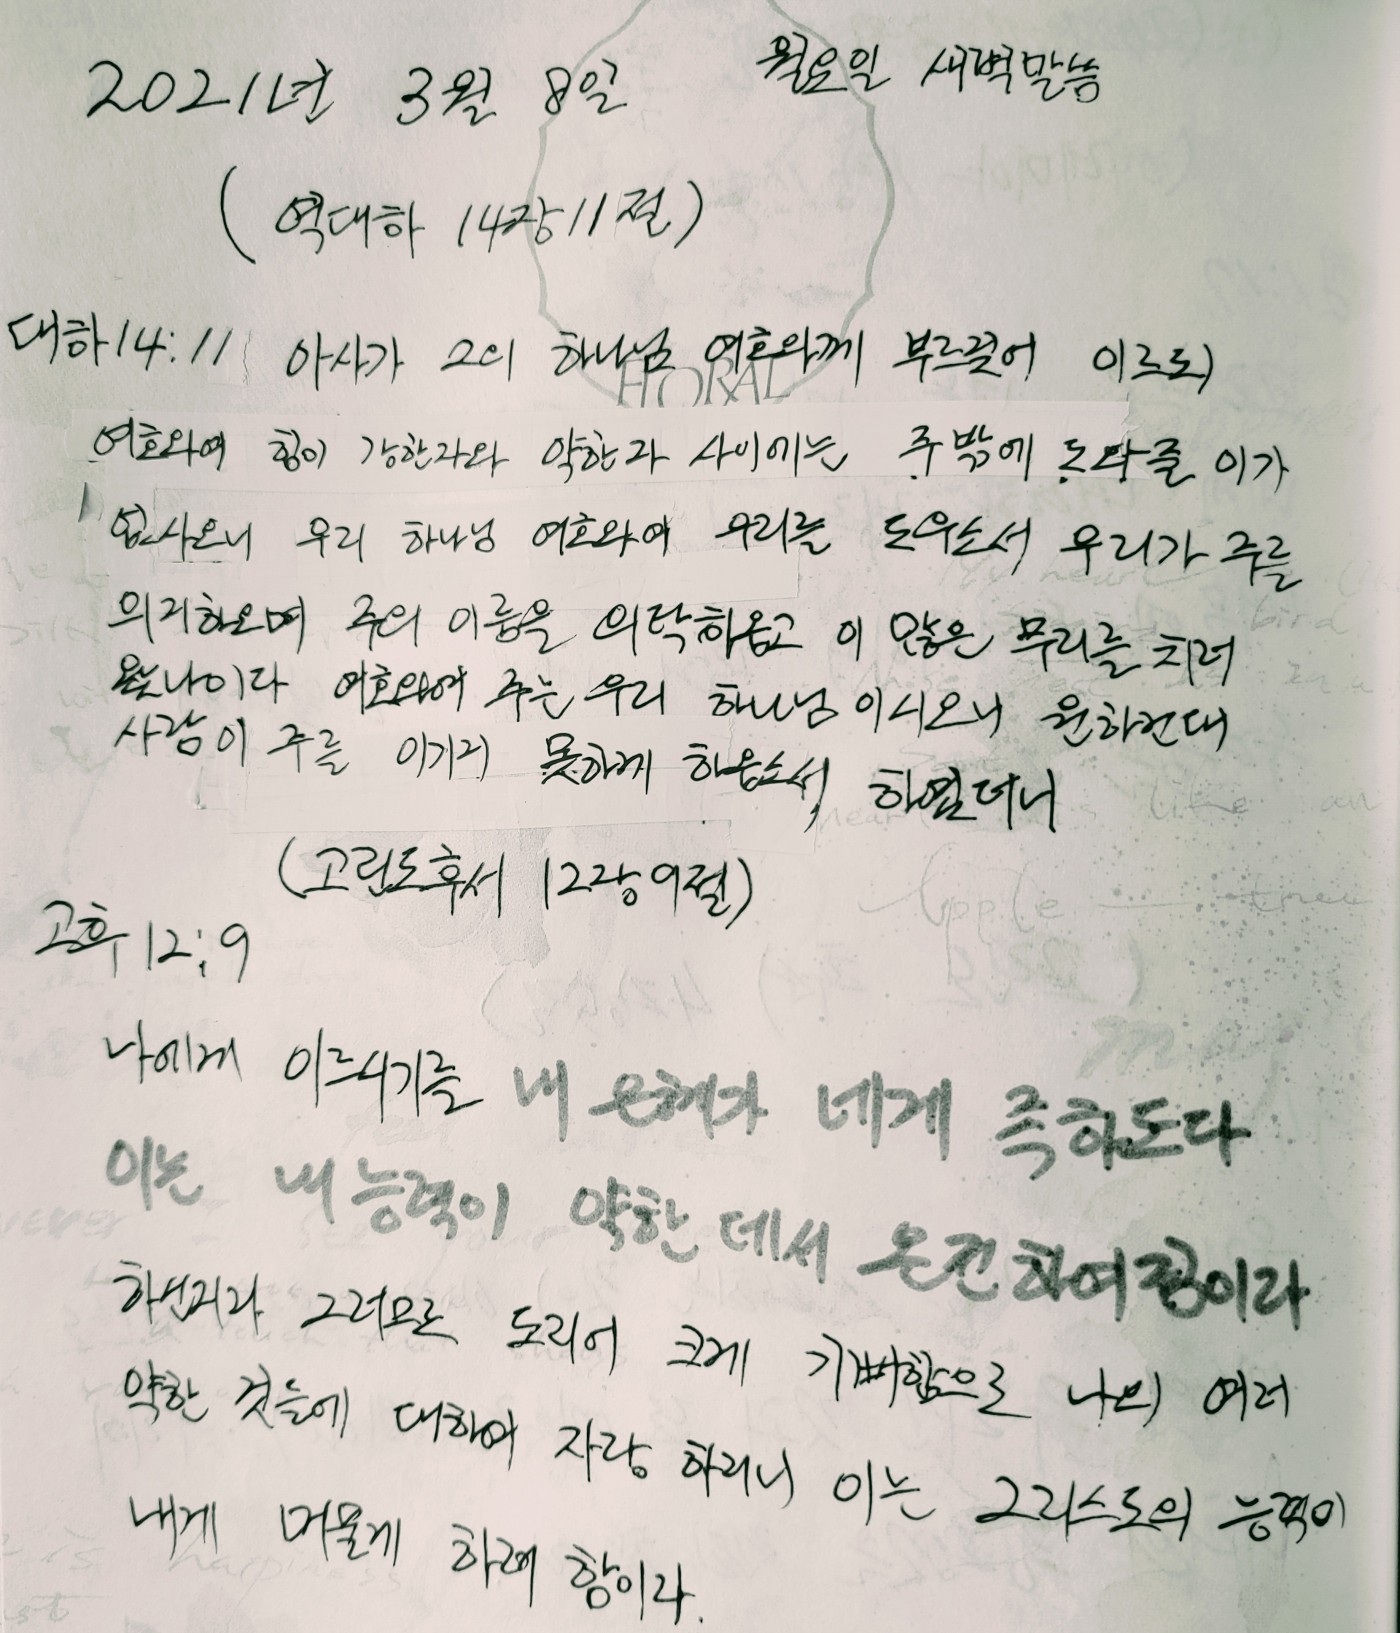 2021년 3월 8일 월요일 새벽말씀
(역대하 14장 11절)
대하14:11 아사가 그의 하나님 여호와께 부르짖어 이르되
HORAL
여호와여 힘이 강한자와 약한자 사이에는 주밖에 도와줄 이가
없사오니 우리 하나님 여호와여 우리를 도우소서 우리가 주를
의지하오며 주의 이름을 의탁하옵고 이 많은 무리를 치러
왔나이다 여호와여 주는 우리 하나님 이시오니 원하건대
사람이 주를 이기지 못하게 하옵소서 하였더니
(고린도후서 12장 9절)
고후 12:9
나에게 이르시기를 내 은혜가 네게 족하도다
이는 내 능력이 약한 데서 온전하여짐이라
하신지라 그러므로 도리어 크게 기뻐함으로 나의 여러
약한 것들에 대하여 자랑 하리니 이는 그리스도의 능력이
내게 머물게 하려 함이라.